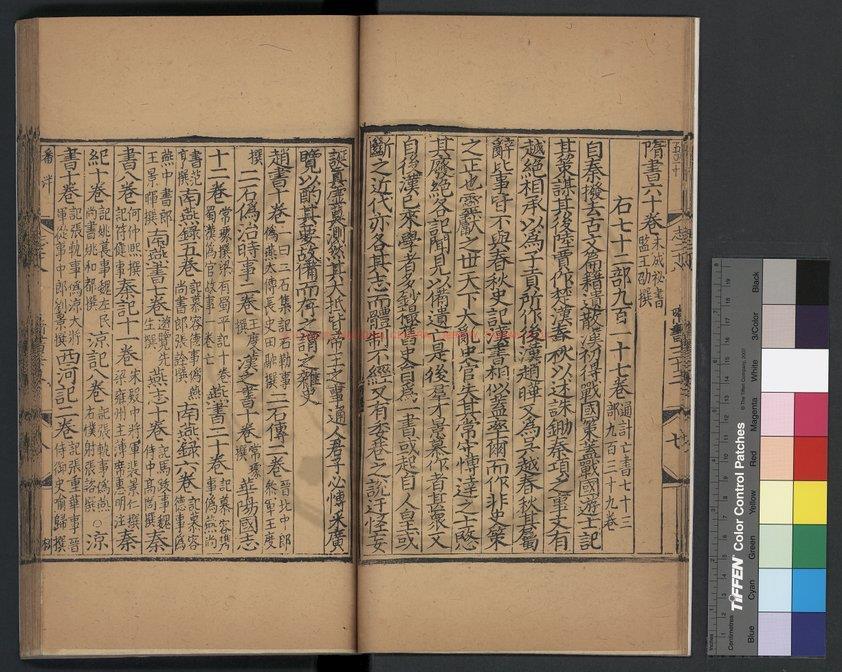 隋書六十卷未成祕書監王劭撰
右七十二部九百一十七卷通計亡書七十三部九百三十九卷
自秦撥去古文篇籍遺散漢初得戰國策蓋戰國遊士記
其策謀其後陸賈作楚漢春秋以述誅鋤秦項之事又有
越絕相承以為子貢所作後漢趙曄又為吳越春秋其屬
辭比事皆不與春秋史記漢書相似蓋率爾而作非史策
之正也靈獻之世天下大亂史官失其常守博達之士愍
其廢絕各記聞見以備遺亡是後羣才景慕作者甚衆又
自後漢已來學者多鈔撮舊史自為一書或起自人皇或
斷之近代亦各其志而體制不經又有委巷之說迂怪妄
誕真虛莫測然其大抵皆帝王之事通人君子必博采廣
覽以酌其要故備而存之謂之雜史
趙書十卷一曰二石集記石勒事偽燕太傅長史田融撰二石傳二卷晉北中郎參軍王度
撰二石偽治時事二卷王度撰漢之書十卷常璩撰華陽國志
十二卷常璩撰梁有蜀平記十卷蜀漢偽官故事一卷亡燕書二十卷記慕容雋事偽燕尚
書范亨撰南燕錄五卷記慕容德事偽燕尚書郎張詮撰南燕錄六卷記慕容德事偽
燕中書郎王景暉撰南燕書七卷遊覽先生撰燕志十卷記馮跋事魏侍中高閭撰秦
書八卷何仲熙撰記苻健事秦記十一卷宋殿中將軍裴景仁撰梁雍州主簿席惠明注秦
紀十卷記姚萇事魏左民尚書姚和都撰涼記八卷記張軌事偽燕右僕射張諮撰○涼
書十卷記張軌事偽涼大將軍從事中郎劉景撰西河記二卷記張重華事晉侍御史喻歸撰
TIFFEN Color Control Patches
Blue
Cyan
Green
Yellow
Red
Magenta
White
3/Color
Black
Centimetres
Inches